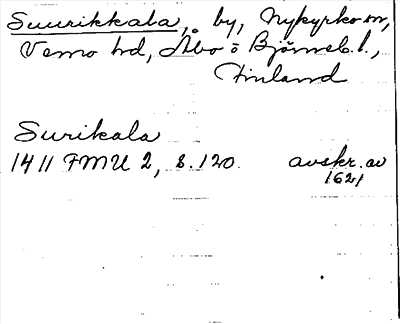 Suurikkala, by, Nykyrko sn,
Vemo hd, Åbo o Björneb. l.,
Finland
Surikala
1411 FMU 2, s. 120. avskr. av
1621